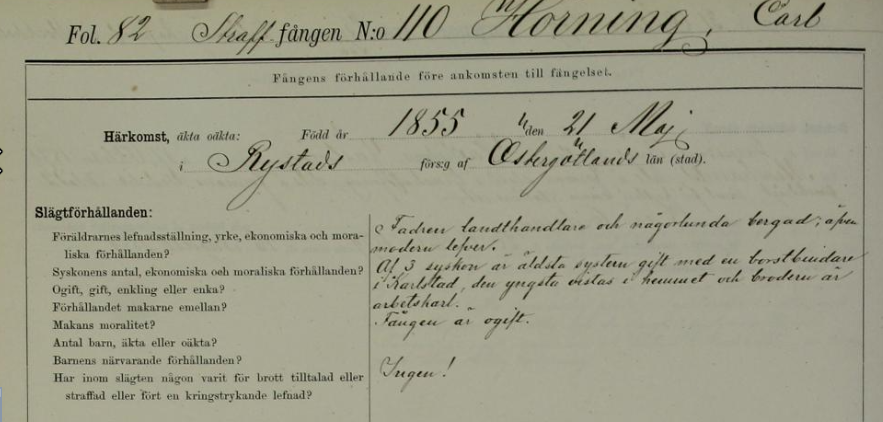 Fol. 82 Straff fången N:o 110 Horning, Carl
Fångens förhållande före ankomsten till fängelset.
Härkomst, äkta oäkta: Född år 1855 den 21 Maj
i Rystads förs:g af Östergötlands län (stad).
Slägtförhållanden:
Föräldrarnes lefnadsställning, yrke, ekonomiska och mora-
liska förhållanden?
Syskonens antal, ekonomiska och moraliska förhållanden?
Ogift, gift, enkling eller enka?
Förhållandet makarne emellan?
Makans moralitet?
Antal barn, äkta eller oäkta?
Barnens närvarande förhållanden?
Har inom slägten någon varit för brott tilltalad eller
straffad eller fört en kringstrykande lefnad?
Fadren landthandlare och någorlunda bergad; äfven
modern lefver.
Af 3 syskon är äldsta systern gift med en borstbindare
i Karlstad, den yngsta vistas i hemmet och brodern är
arbetskarl.
Fången är ogift.
Ingen!